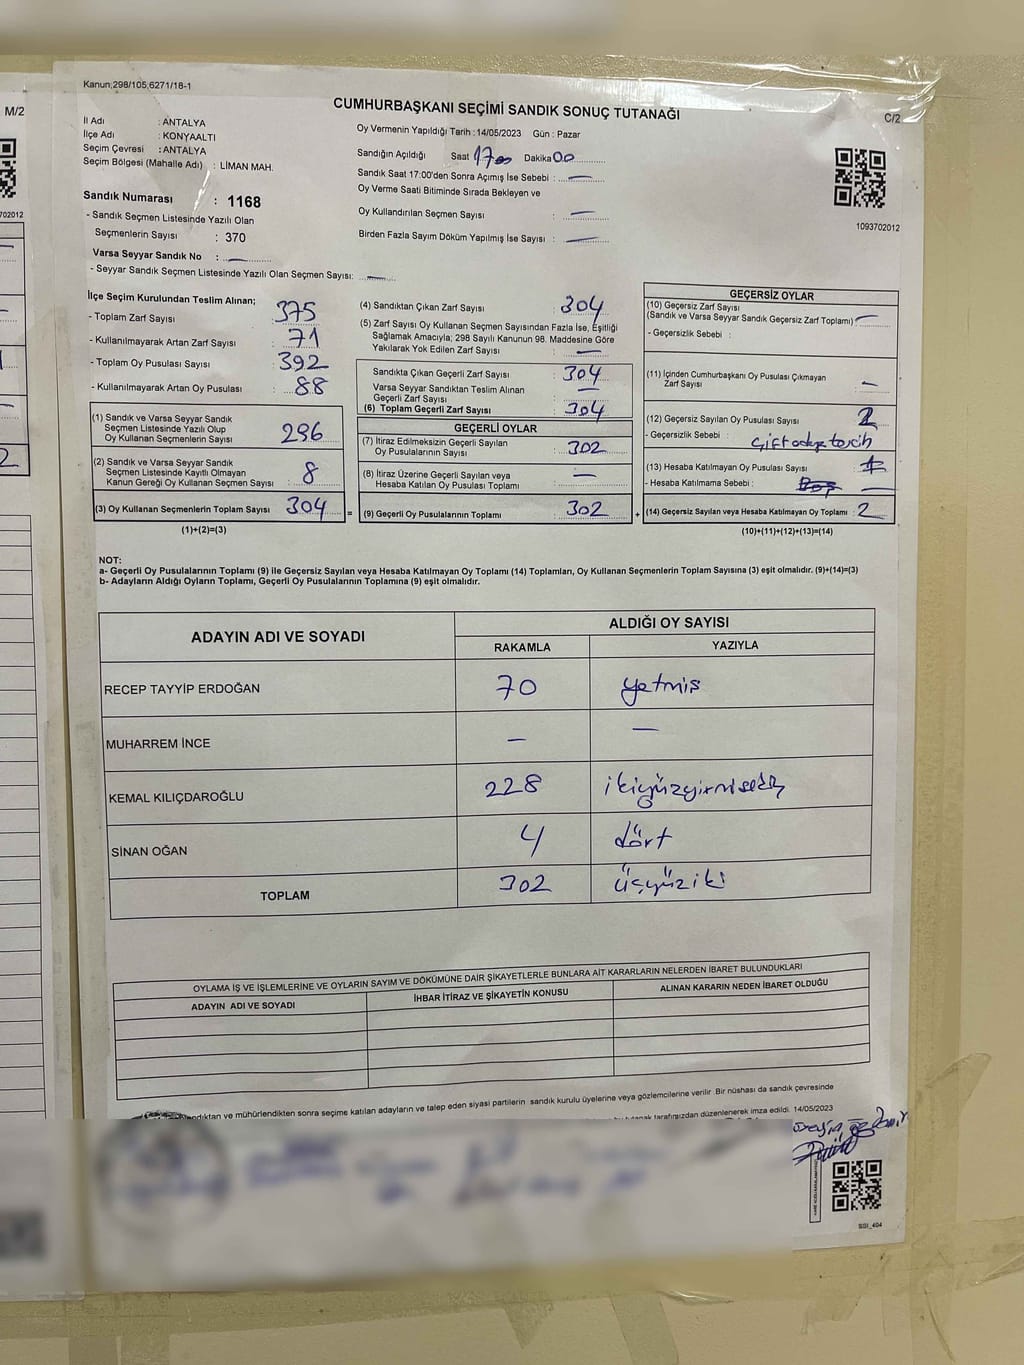 Kanun;298/105;6271/18-1
M/2
CUMHURBAŞKANI SEÇİMİ SANDIK SONUÇ TUTANAĞI
C/2
İl Adı : ANTALYA
İlçe Adı : KONYAALTI
Seçim Çevresi : ANTALYA
Seçim Bölgesi (Mahalle Adı) : LİMAN MAH.
Oy Vermenin Yapıldığı Tarih : 14/05/2023 Gün : Pazar
Sandığın Açıldığı Saat 17 00 Dakika 00
Sandık Saat 17:00'den Sonra Açımış İse Sebebi : —
Oy Verme Saati Bitiminde Sırada Bekleyen ve
Oy Kullandırılan Seçmen Sayısı : —
Birden Fazla Sayım Döküm Yapılmış İse Sayısı : —
1093702012
702012
Sandık Numarası : 1168
- Sandık Seçmen Listesinde Yazılı Olan
Seçmenlerin Sayısı : 370
Varsa Seyyar Sandık No : —
- Seyyar Sandık Seçmen Listesinde Yazılı Olan Seçmen Sayısı: —
İlçe Seçim Kurulundan Teslim Alınan;
- Toplam Zarf Sayısı : 375
- Kullanılmayarak Artan Zarf Sayısı : 71
- Toplam Oy Pusulası Sayısı : 392
- Kullanılmayarak Artan Oy Pusulası : 88
(1) Sandık ve Varsa Seyyar Sandık
Seçmen Listesinde Yazılı Olup
Oy Kullanan Seçmenlerin Sayısı : 296
(2) Sandık ve Varsa Seyyar Sandık
Seçmen Listesinde Kayıtlı Olmayan
Kanun Gereği Oy Kullanan Seçmen Sayısı : 8
(3) Oy Kullanan Seçmenlerin Toplam Sayısı : 304
(1)+(2)=(3)
(4) Sandıktan Çıkan Zarf Sayısı : 304
(5) Zarf Sayısı Oy Kullanan Seçmen Sayısından Fazla İse, Eşitliği
Sağlamak Amacıyla; 298 Sayılı Kanunun 98. Maddesine Göre
Yakılarak Yok Edilen Zarf Sayısı : —
Sandıkta Çıkan Geçerli Zarf Sayısı : 304
Varsa Seyyar Sandıktan Teslim Alınan
Geçerli Zarf Sayısı : —
(6) Toplam Geçerli Zarf Sayısı : 304
GEÇERLİ OYLAR
(7) İtiraz Edilmeksizin Geçerli Sayılan
Oy Pusulalarının Sayısı : 302
(8) İtiraz Üzerine Geçerli Sayılan veya
Hesaba Katılan Oy Pusulası Toplamı : —
= (9) Geçerli Oy Pusulalarının Toplamı : 302 +
GEÇERSİZ OYLAR
(10) Geçersiz Zarf Sayısı
(Sandık ve Varsa Seyyar Sandık Geçersiz Zarf Toplamı) —
- Geçersizlik Sebebi :
(11) İçinden Cumhurbaşkanı Oy Pusulası Çıkmayan
Zarf Sayısı : —
(12) Geçersiz Sayılan Oy Pusulası Sayısı : 2
- Geçersizlik Sebebi : çift adaya tercih
(13) Hesaba Katılmayan Oy Pusulası Sayısı : 1
- Hesaba Katılmama Sebebi : Boş —
(14) Geçersiz Sayılan veya Hesaba Katılmayan Oy Toplamı : 2
(10)+(11)+(12)+(13)=(14)
NOT:
a- Geçerli Oy Pusulalarının Toplamı (9) ile Geçersiz Sayılan veya Hesaba Katılmayan Oy Toplamı (14) Toplamları, Oy Kullanan Seçmenlerin Toplam Sayısına (3) eşit olmalıdır. (9)+(14)=(3)
b- Adayların Aldığı Oyların Toplamı, Geçerli Oy Pusulalarının Toplamına (9) eşit olmalıdır.
ADAYIN ADI VE SOYADI ALDIĞI OY SAYISI
RAKAMLA YAZIYLA
RECEP TAYYİP ERDOĞAN 70 yetmiş
MUHARREM İNCE — —
KEMAL KILIÇDAROĞLU 228 ikiyüzyirmisekiz
SİNAN OĞAN 4 dört
TOPLAM 302 üçyüziki
OYLAMA İŞ VE İŞLEMLERİNE VE OYLARIN SAYIM VE DÖKÜMÜNE DAİR ŞİKAYETLERLE BUNLARA AİT KARARLARIN NELERDEN İBARET BULUNDUKLARI
ADAYIN ADI VE SOYADI İHBAR İTİRAZ VE ŞİKAYETİN KONUSU ALINAN KARARIN NEDEN İBARET OLDUĞU
ve mühürlendikten sonra seçime katılan adayların ve talep eden siyasi partilerin sandık kurulu üyelerine veya gözlemcilerine verilir. Bir nüshası da sandık çevresinde
tarafımızdan düzenlenerek imza edildi. 14/05/2023
SSI_404